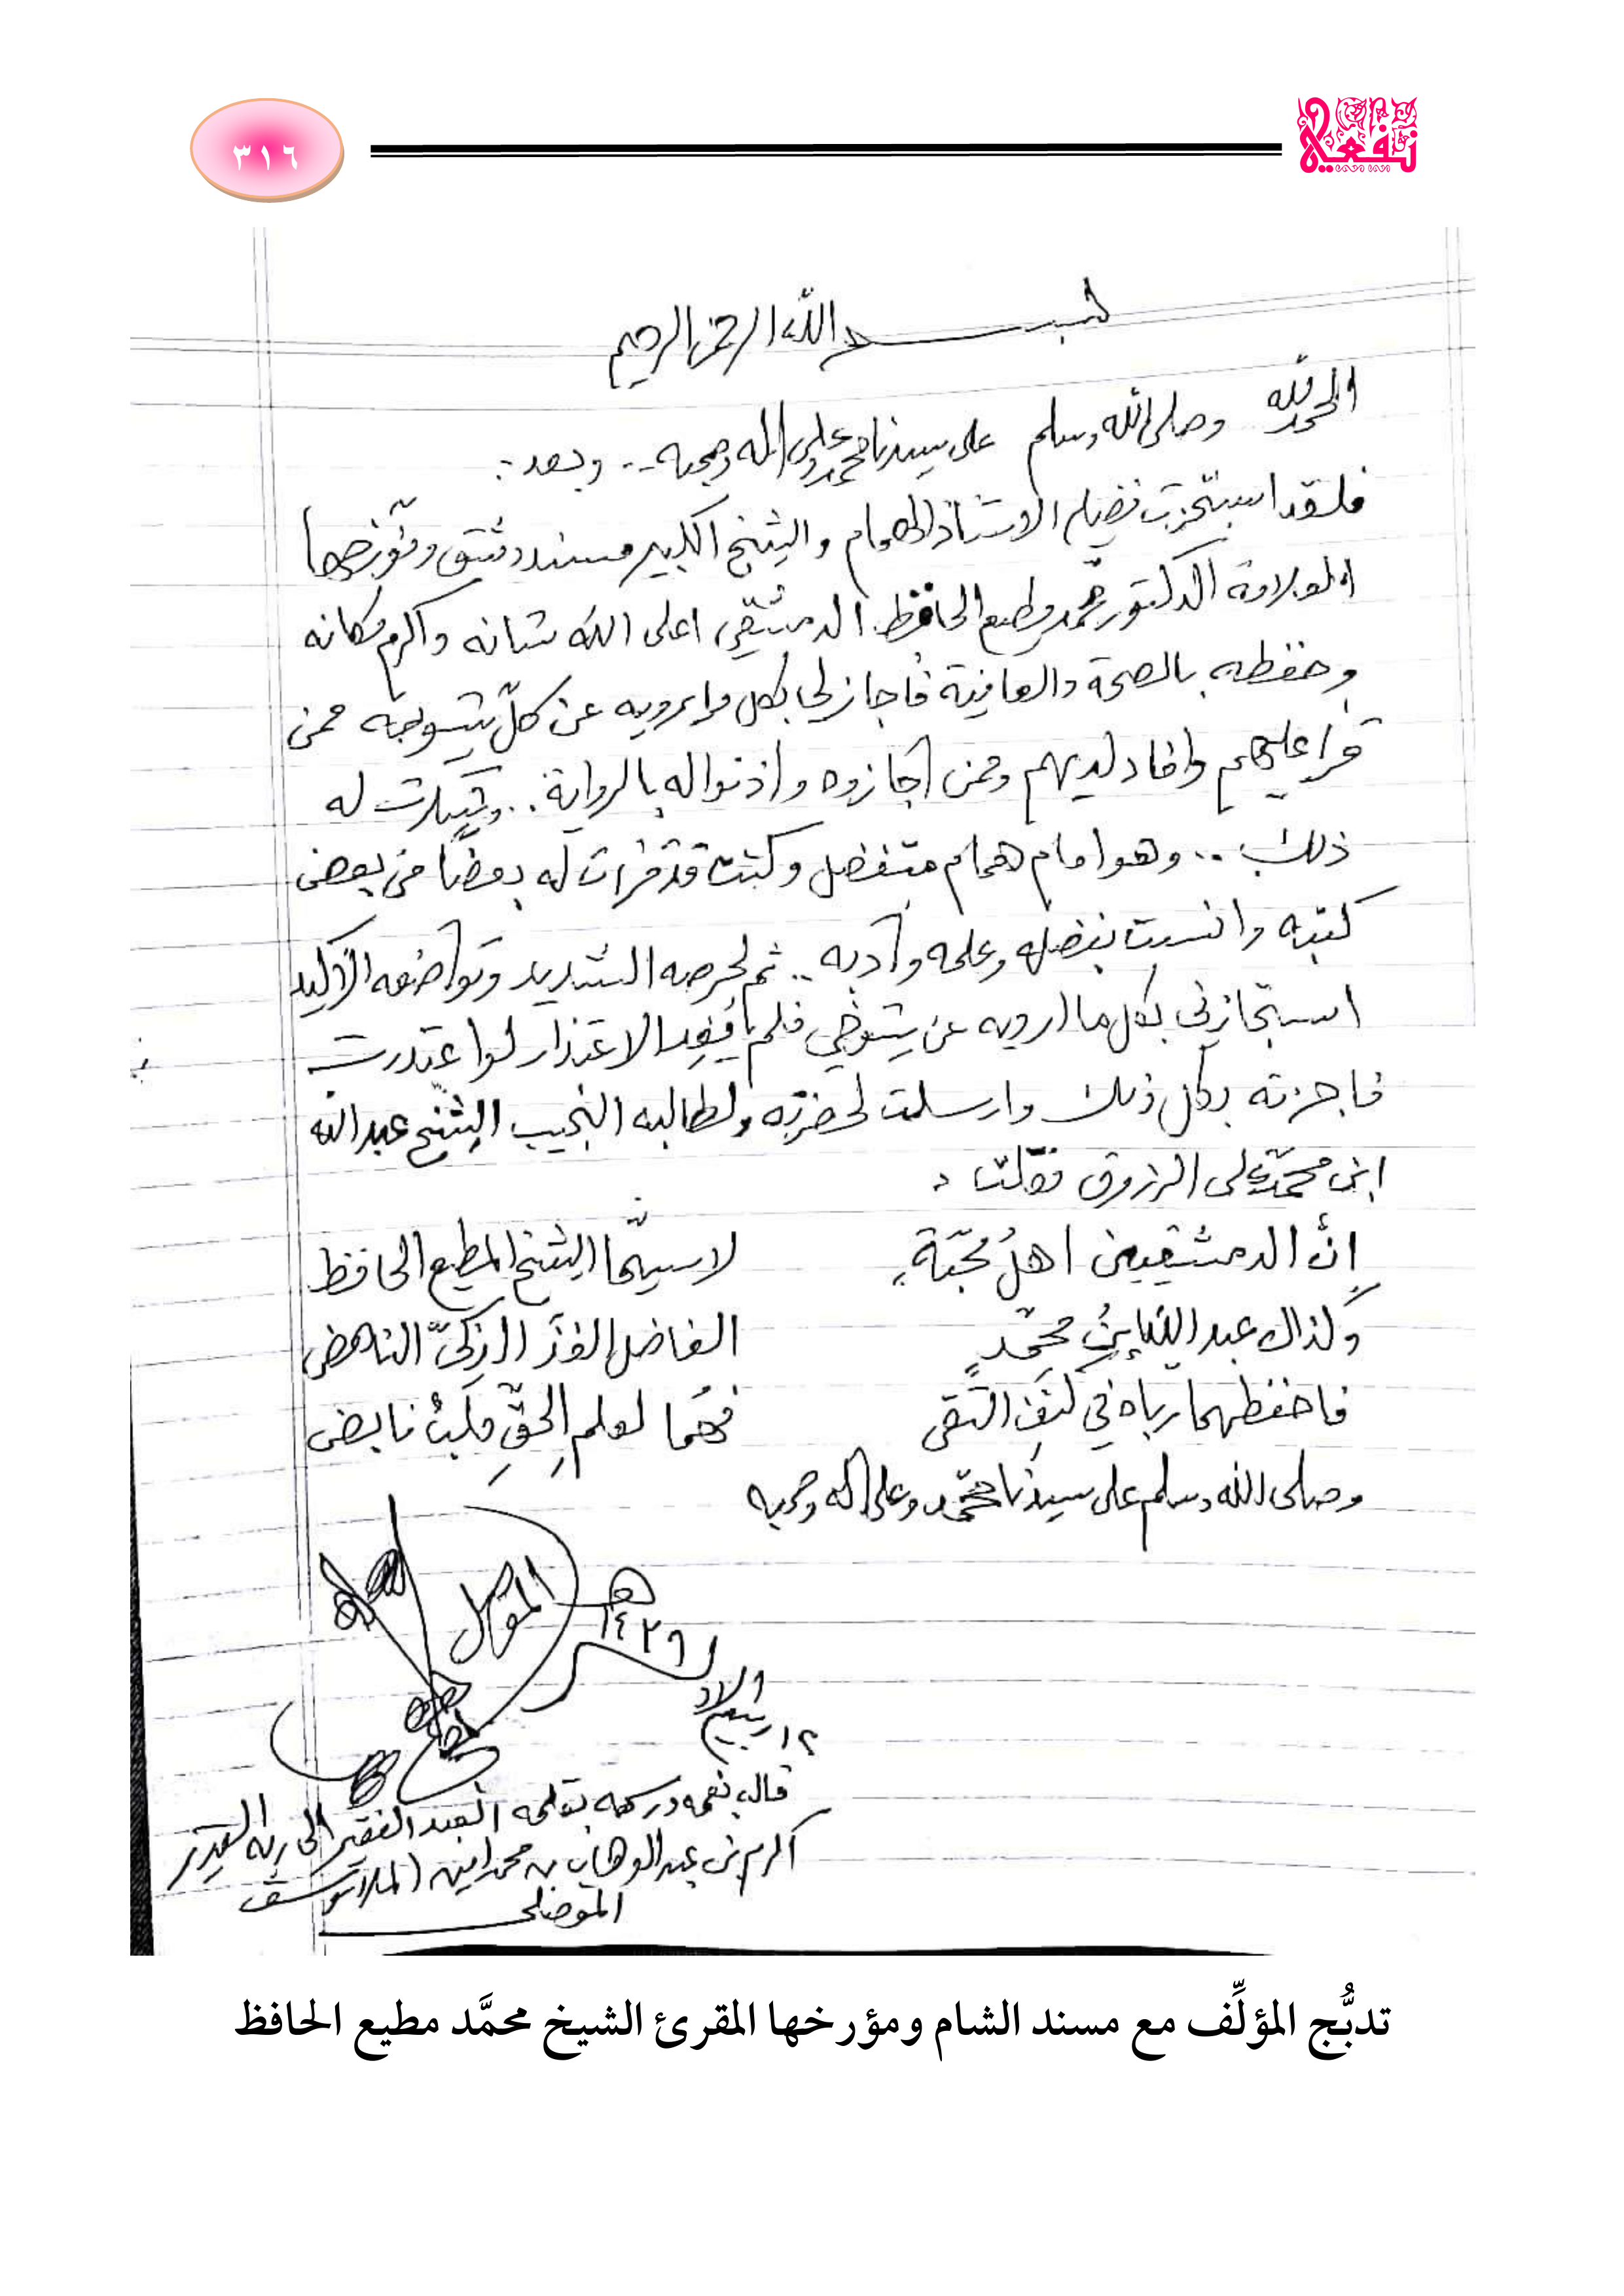 ٣١٦
نفعية
بسم الله الرحمن الرحيم
الحمد لله وصلى الله وسلم على سيدنا محمد وعلى اله وصحبه .. وبعد :
فلقد استجزت فضيلة الاستاذ الهمام والشيخ الكبير مسند دمشق ومؤرخها
العلامة الدكتور محمد مطيع الحافظ الدمشقي اعلى الله شانه واكرم مكانه
وحفظه بالصحة والعافية فاجاز لي بكل ما يرويه عن كلّ شيوخه ممن
قرا عليهم وافاد لديهم وممن أجازوه واذنوا له بالرواية .. وشكرت له
ذلك .. وهو امام همام متفضل وكنت قد قرات له بعضا من بعض
كتبه وانست بفضله وعلمه وأدبه .. ثم لحرصه الشديد وتواضعه الأكيد
استجازني بكل ما ارويه عن شيوخي فلم يفد الاعتذار لو اعتذرت
فاجزته بكل ذلك وارسلت لحضرته ولطالبه النجيب الشيخ عبد الله
ابن محمد علي الرزوق فقلت :
إنّ الدمشقيين اهلُ محبّةٍ لاسيّما الشيخ المطيع الحافظ
وكذاك عبد الله بن محمّدٍ الفاضل الفذّ الزكيّ الناهض
فاحفظهما رباه في كنف التقى فهما لعلم الحقِّ قلبٌ نابض
وصلى الله وسلم على سيدنا محمّد وعلى اله وصحبه
الموصل
١٤٢٦ هـ
١٢ ربيع الاول
قاله بفمه ورسمه بقلمه العبد الفقير الى ربه القدير
اكرم بن عبد الوهاب بن محمد امين الملا يوسف
الموصلي
تدبُّج المؤلِّف مع مسند الشام ومؤرخها المقرئ الشيخ محمَّد مطيع الحافظ